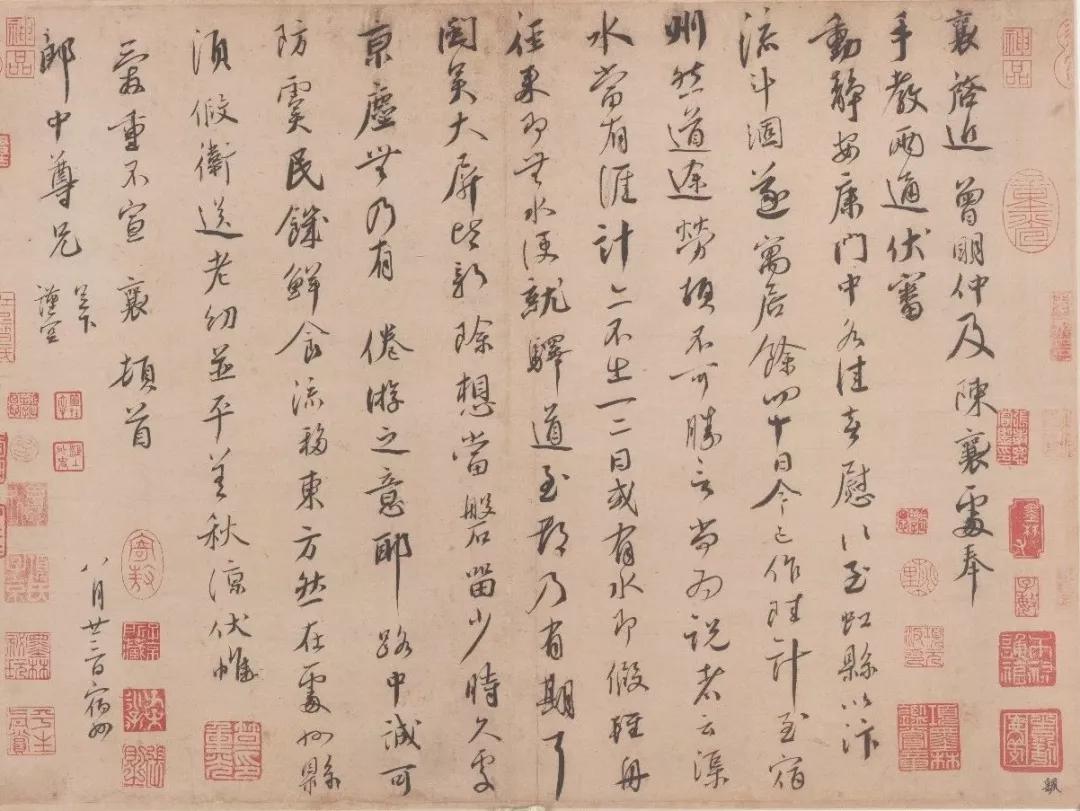 襄啓近曾明仲及陳襄處奉
手教兩通伏審
動靜安康門中各佳喜慰〻至虹縣以汴
流斗涸遂寓居餘四十日今已作陸計至宿
州然道途勞頓不可勝言尚為說者云渠
水當有涯計亦不出一二日或有水即假輕舟
徑來即無水便就驛道至都乃有期了
閩吳大屏皆新除想當磐留少時久處
京塵無乃有倦游之意耶路中誠可
防虞民饑鮮食流移東方然在處州縣
須假衛送老幼並平善秋涼伏惟
愛重不宣襄頓首
郎中尊兄足下
謹空
八月廿三日宿州
神品
神品